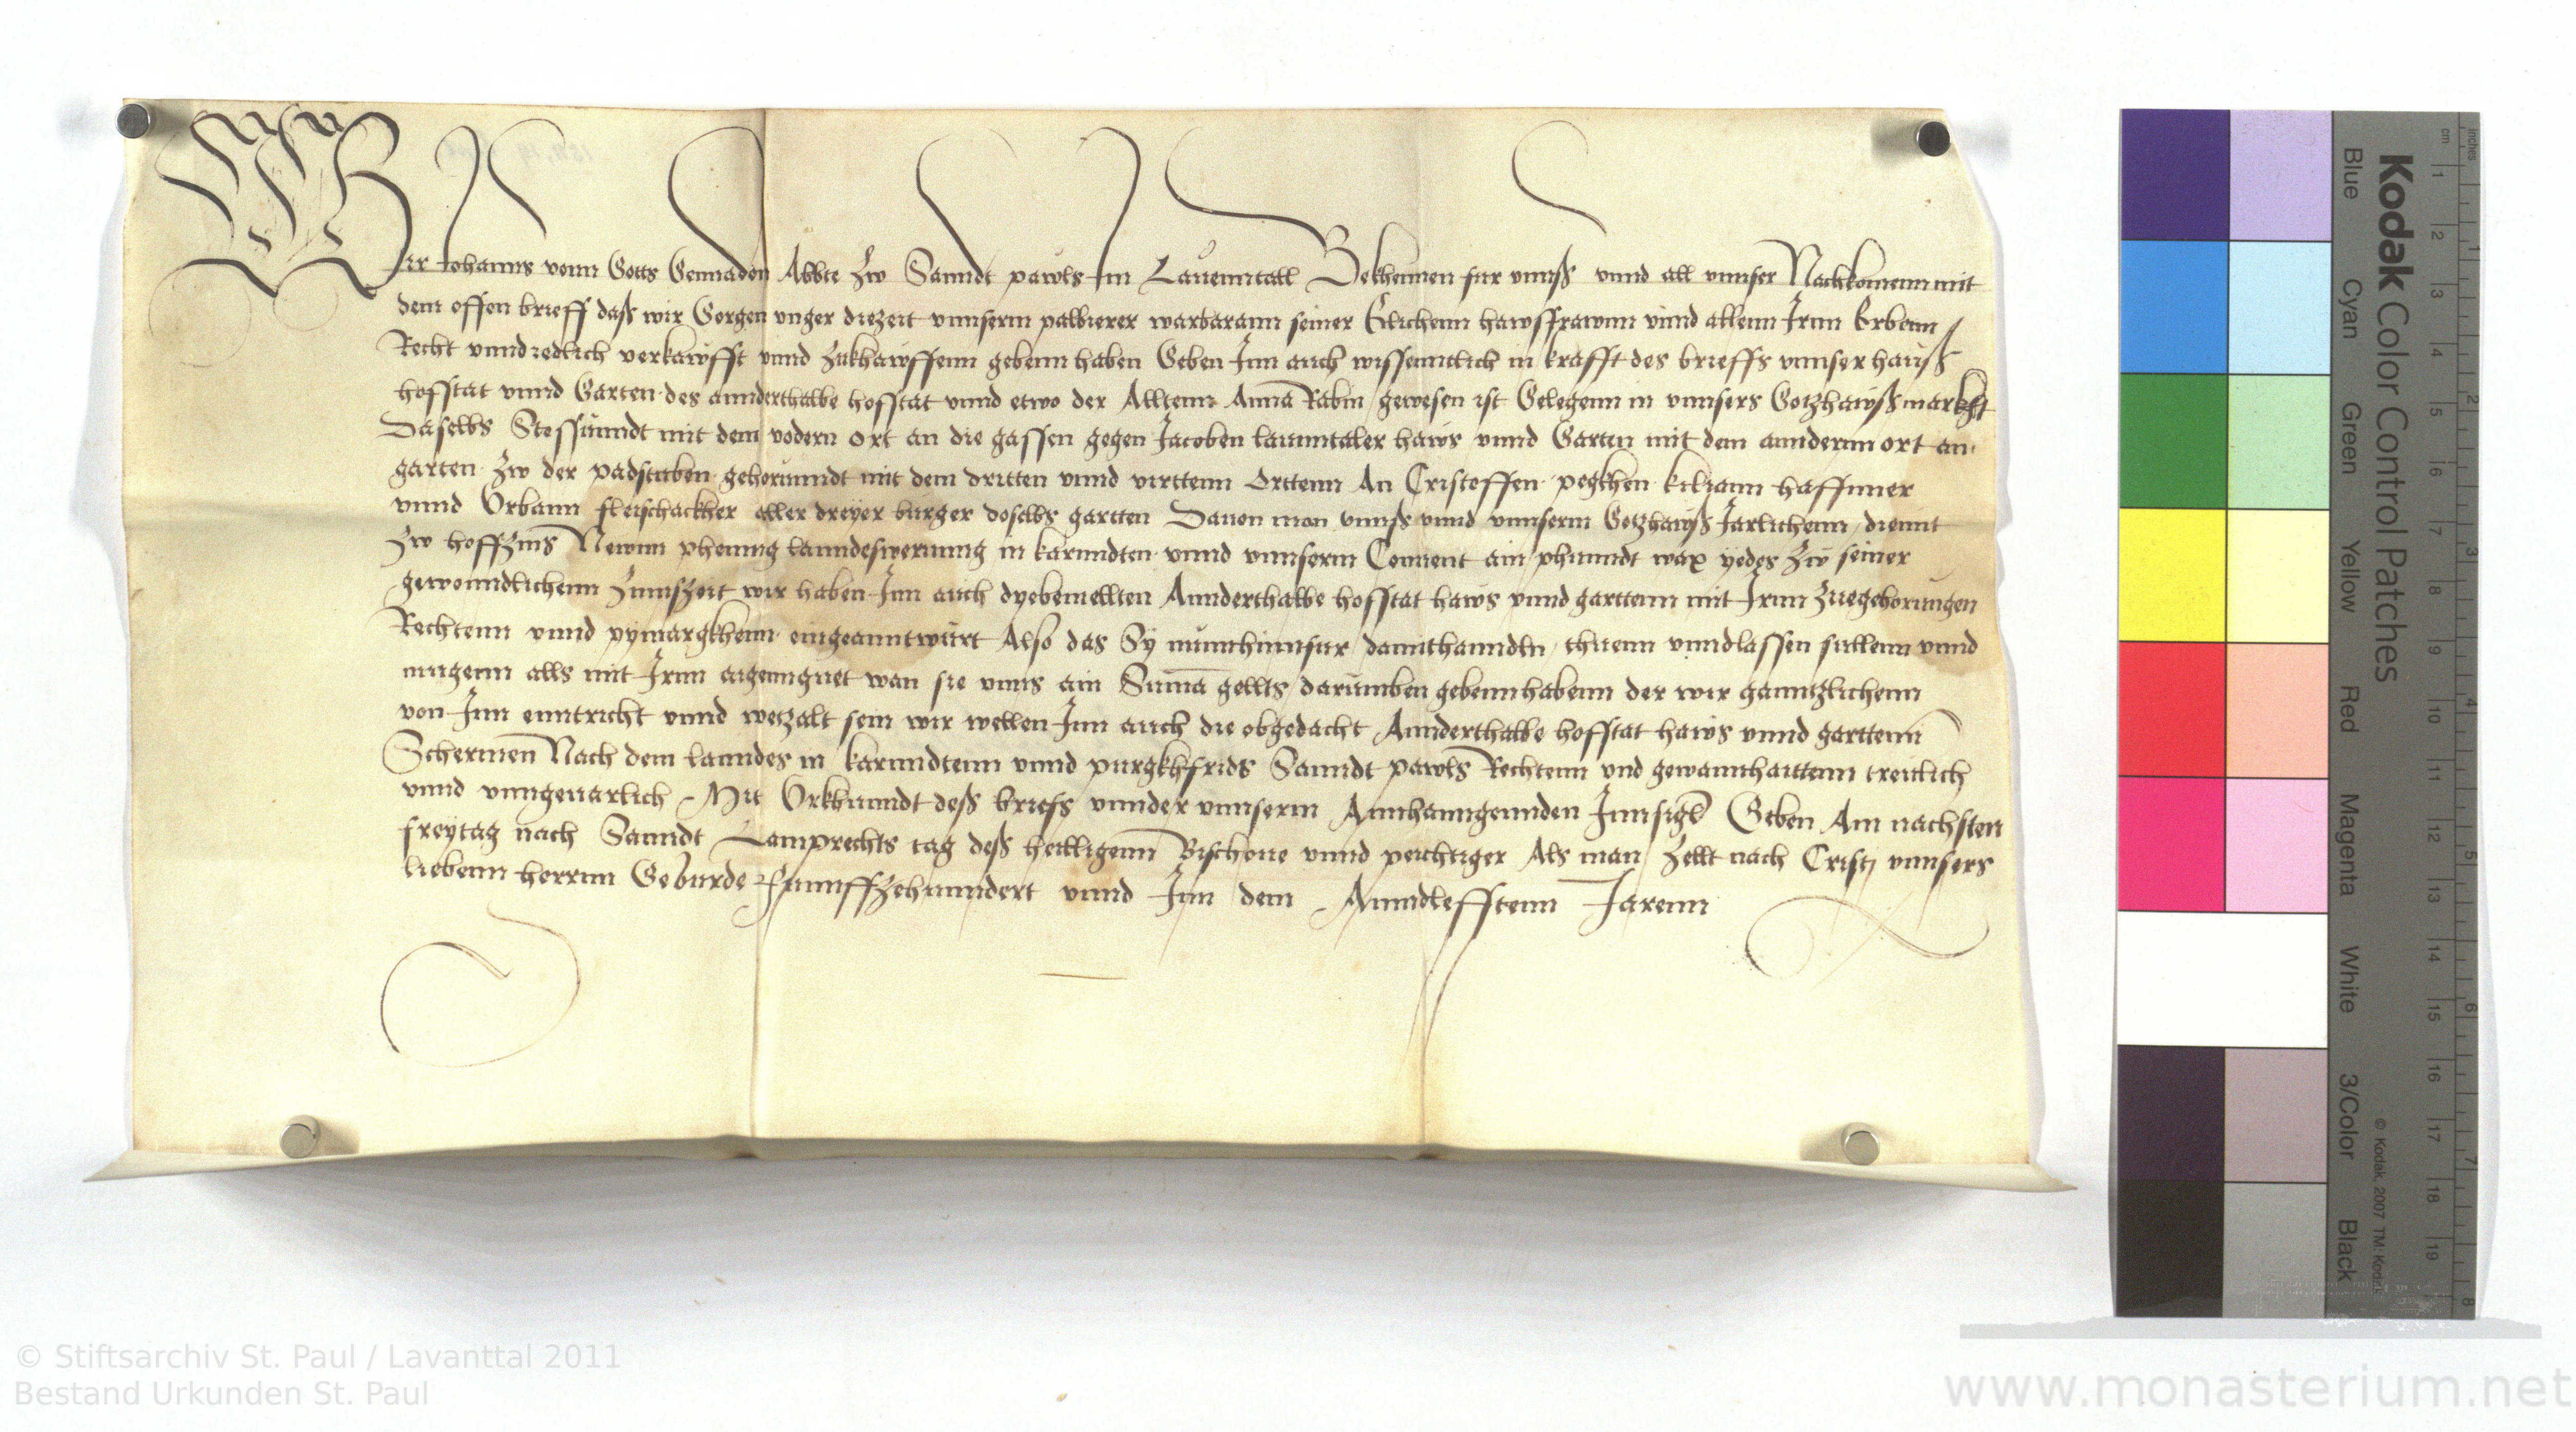 Wir Johanns vonn Gotts Gennaden Abbte Zw Sanndt pawls Im Lauenntall Bekhennen fur vnnß vnnd all vnnser Nachkomenn mit
dem offen brieff daß wir Gorgen vnger diezeit vnnserm palbierer warbarann seiner Elichenn hawsfrawnn vnnd allenn Irnn Erbenn
Recht vnnd redlich verkawfft vnnd Zukhawffenn gebenn haben Geben Inn auch wissenntlich in krafft des brieffs vnnser hauß
hofstat vnnd Garten des annderthalbe hofstat vnnd etwo der Alltenn Anna Rabin gewesen ist Gelegenn in vnnsers Gotzhawß markht
Daselbs Stossunndt mit dem vodern ort an die gassen gegen Jacoben lauenntaler haws vnnd Garten mit dem anndernn ort an
garten Zw der padstuben gehorunndt mit dem dritten vnnd virttenn Orttenn An Cristoffen pegkhen kiliann haffnner
vnnd Vrbann fleischackher aller dreyer burger doselbs gartten Dauon man vnnß vnnd vnnserm Gotzhawß Jarlichenn diennt
Zw hoffzinß Newnn phennig lanndeswerunng in karnndten vnnd vnnserm Conuent ain phunndt wax yedes Zw seiner
gewonndlichenn Zinnßzeit wir haben Inn auch dyebemellten Annderthalbe hofstat haws vnnd garttenn mit Irnn Zuegehorungen
Rechtenn vnnd pymargkhenn eingeanntwurt Also das Sy nunnhinnfur damithanndln thuenn vnndlassen sullenn vnnd
mugenn alls mit Irnn aigenngnet wan sie vnns ain Suma gellts darumben gebennhabenn der wir ganntzlichenn
von Inn enntricht vnnd wetzalt sein wir wellen Inn auch die obgedacht Annderthalbe hofstat haws vnnd garttenn
Schermen Nach dem lanndes in karnndtenn vnnd purgkhfrids Sanndt pawls Rechtenn vnd gewannhaittenn treulich
vnnd vnngeuarlich Mit Vrkhunndt deß briefs vnnder vnnserm Annhanngennden Innsigl Geben Am nachsten
freytag nach Sanndt Lamprechts tag deß heilligenn Bischoue vnnd peichtiger Als man Zellt nach Cristj vnnsers
liebenn herrnn Geburde Funnffzehunndert vnnd Inn dem Anndlefftenn Jarenn
Kodak Color Control Patches
Blue Cyan Green Yellow Red Magenta White 3/Color Black
© Kodak, 2007 TM: Kodak
cm 1 2 3 4 5 6 7 8 9 10 11 12 13 14 15 16 17 18 19
inches 1 2 3 4 5 6 7 8
© Stiftsarchiv St. Paul / Lavanttal 2011
Bestand Urkunden St. Paul
www.monasterium.net